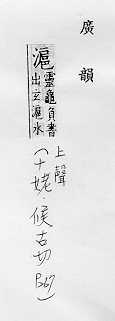 廣韻
滬
靈龜負書
出玄滬水
上聲
(十姥.候古切
P267)